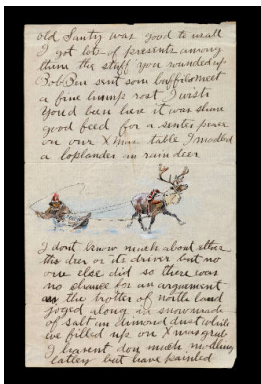 old Santy was good to us all
I got lots of presents among
them the stuff you rounded up
Bob Ben sent som buffilo meet
a fine hump rost I wish
Youd ben here it was shure
good feed for a senter peace
on our Xmas table I modled
a loplander in rain deer
I dont know much about ether
the deer or its driver but no
one else did so there was
no chance for an argument
as the trotter of north land
joged along in snow made
of salt an dimond dust while
we filled up on Xmas grub
I havent don much modling
lattely but have painted